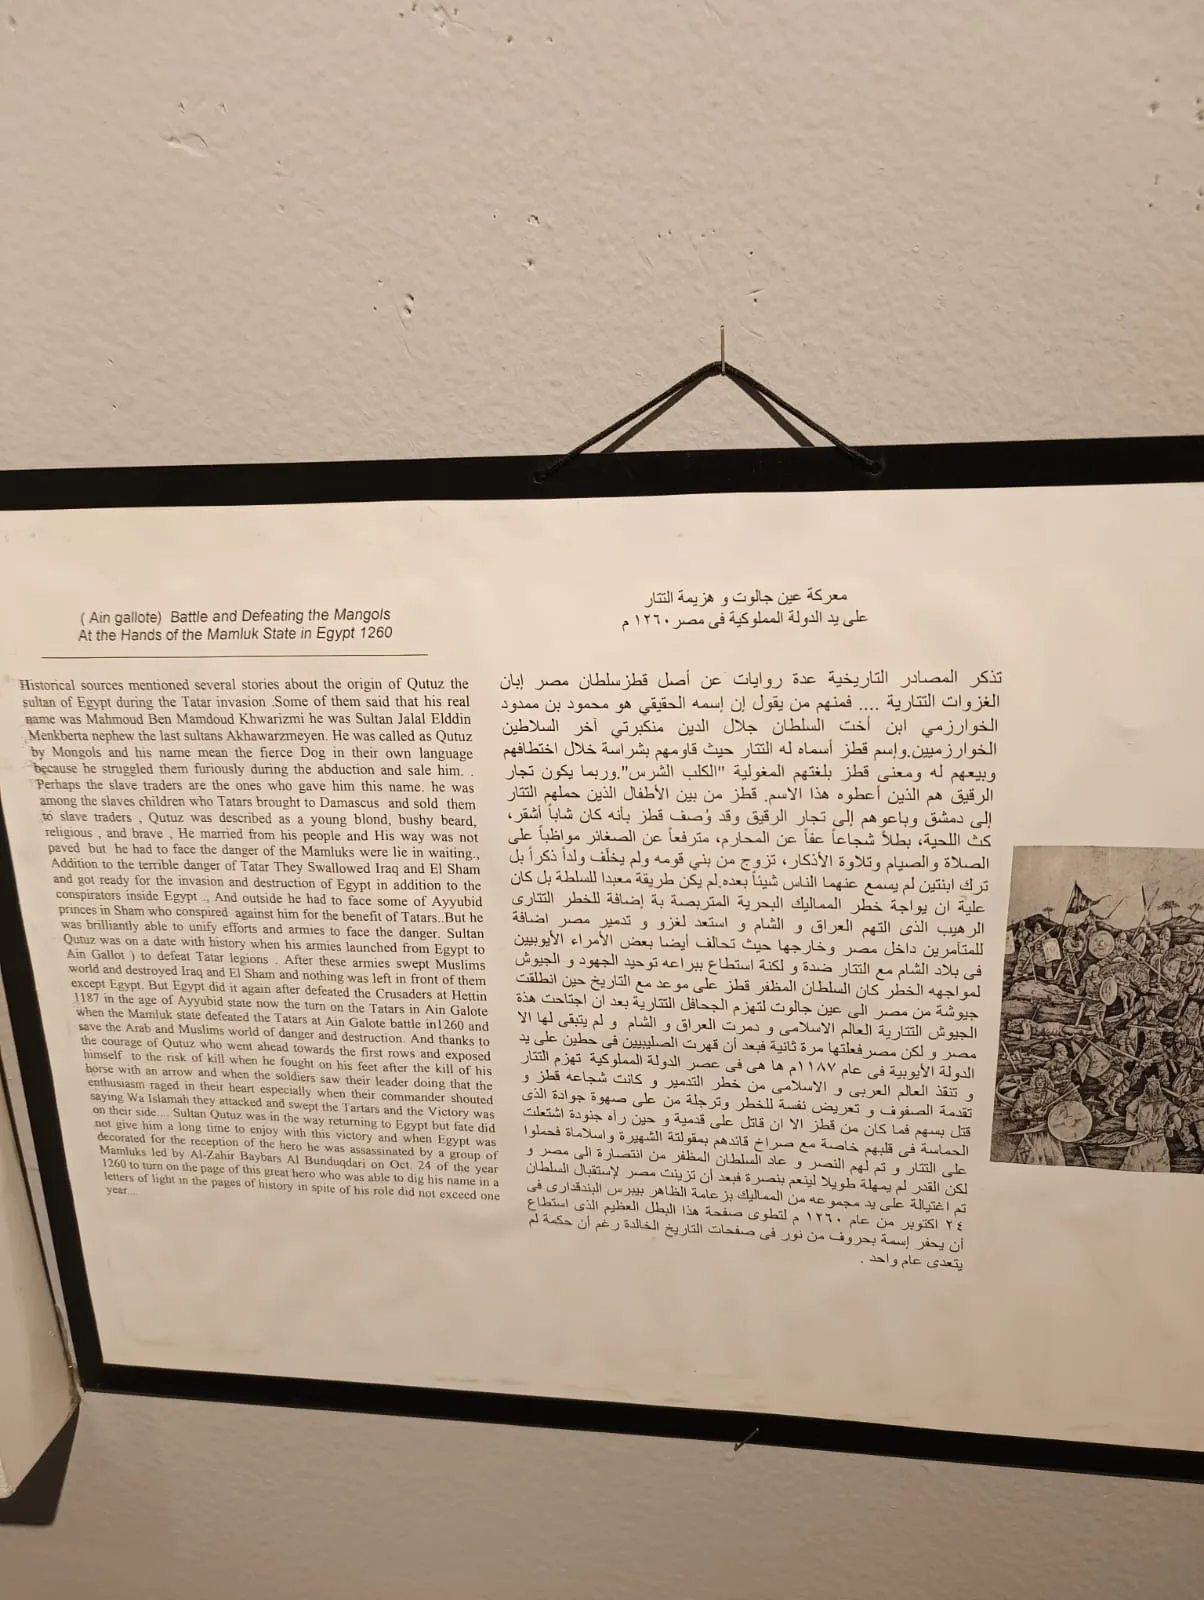 ( Ain gallote) Battle and Defeating the Mangols
At the Hands of the Mamluk State in Egypt 1260
Historical sources mentioned several stories about the origin of Qutuz the
sultan of Egypt during the Tatar invasion .Some of them said that his real
name was Mahmoud Ben Mamdoud Khwarizmi he was Sultan Jalal Elddin
Menkberta nephew the last sultans Akhawarzmeyen. He was called as Qutuz
by Mongols and his name mean the fierce Dog in their own language
because he struggled them furiously during the abduction and sale him. .
Perhaps the slave traders are the ones who gave him this name. he was
among the slaves children who Tatars brought to Damascus and sold them
to slave traders , Qutuz was described as a young blond, bushy beard,
religious , and brave , He married from his people and His way was not
paved but he had to face the danger of the Mamluks were lie in waiting.,
Addition to the terrible danger of Tatar They Swallowed Iraq and El Sham
and got ready for the invasion and destruction of Egypt in addition to the
conspirators inside Egypt ., And outside he had to face some of Ayyubid
princes in Sham who conspired against him for the benefit of Tatars..But he
was brilliantly able to unify efforts and armies to face the danger. Sultan
Qutuz was on a date with history when his armies launched from Egypt to
Ain Gallot ) to defeat Tatar legions . After these armies swept Muslims
world and destroyed Iraq and El Sham and nothing was left in front of them
except Egypt. But Egypt did it again after defeated the Crusaders at Hettin
1187 in the age of Ayyubid state now the turn on the Tatars in Ain Galote
when the Mamluk state defeated the Tatars at Ain Galote battle in1260 and
save the Arab and Muslims world of danger and destruction. And thanks to
the courage of Qutuz who went ahead towards the first rows and exposed
himself to the risk of kill when he fought on his feet after the kill of his
horse with an arrow and when the soldiers saw their leader doing that the
enthusiasm raged in their heart especially when their commander shouted
saying Wa Islamah they attacked and swept the Tartars and the Victory was
on their side.... Sultan Qutuz was in the way returning to Egypt but fate did
not give him a long time to enjoy with this victory and when Egypt was
decorated for the reception of the hero he was assassinated by a group of
Mamluks led by Al-Zahir Baybars Al Bunduqdari on Oct. 24 of the year
1260 to turn on the page of this great hero who was able to dig his name in a
letters of light in the pages of history in spite of his role did not exceed one
year....
معركة عين جالوت و هزيمة التتار
على يد الدولة المملوكية فى مصر ١٢٦٠ م
تذكر المصادر التاريخية عدة روايات عن أصل قطزسلطان مصر إبان
الغزوات التتارية .... فمنهم من يقول إن إسمه الحقيقي هو محمود بن ممدود
الخوارزمي ابن أخت السلطان جلال الدين منكبرتي آخر السلاطين
الخوارزميين.وإسم قطز أسماه له التتار حيث قاومهم بشراسة خلال اختطافهم
وبيعهم له ومعنى قطز بلغتهم المغولية "الكلب الشرس".وربما يكون تجار
الرقيق هم الذين أعطوه هذا الاسم. قطز من بين الأطفال الذين حملهم التتار
إلى دمشق وباعوهم إلى تجار الرقيق وقد وُصف قطز بأنه كان شاباً أشقر،
كث اللحية، بطلاً شجاعاً عفاً عن المحارم، مترفعاً عن الصغائر مواظباً على
الصلاة والصيام وتلاوة الأذكار، تزوج من بني قومه ولم يخلّف ولداً ذكراً بل
ترك ابنتين لم يسمع عنهما الناس شيئاً بعده.لم يكن طريقة معبدا للسلطة بل كان
علية ان يواجة خطر المماليك البحرية المتربصة بة إضافة للخطر التتارى
الرهيب الذى التهم العراق و الشام و استعد لغزو و تدمير مصر اضافة
للمتآمرين داخل مصر وخارجها حيث تحالف أيضا بعض الأمراء الأيوبيين
فى بلاد الشام مع التتار ضدة و لكنة استطاع ببراعه توحيد الجهود و الجيوش
لمواجهه الخطر كان السلطان المظفر قطز على موعد مع التاريخ حين انطلقت
جيوشة من مصر الى عين جالوت لتهزم الجحافل التتارية بعد ان اجتاحت هذة
الجيوش التتارية العالم الاسلامى و دمرت العراق و الشام و لم يتبقى لها الا
مصر و لكن مصرفعلتها مرة ثانية فبعد أن قهرت الصليبيين فى حطين على يد
الدولة الأيوبية فى عام ١١٨٧م ها هى فى عصر الدولة المملوكية تهزم التتار
و تنقذ العالم العربى و الاسلامى من خطر التدمير و كانت شجاعه قطز و
تقدمة الصفوف و تعريض نفسة للخطر وترجلة من على صهوة جوادة الذى
قتل بسهم فما كان من قطز الا ان قاتل على قدمية و حين راه جنودة اشتعلت
الحماسة فى قلبهم خاصة مع صراخ قائدهم بمقولتة الشهيرة واسلاماة فحملوا
على التتار و تم لهم النصر و عاد السلطان المظفر من انتصارة الى مصر و
لكن القدر لم يمهلة طويلا لينعم بنصرة فبعد أن تزينت مصر لإستقبال السلطان
تم اغتيالة على يد مجموعه من المماليك بزعامة الظاهر بيبرس البندقدارى فى
٢٤ اكتوبر من عام ١٢٦٠ م لتطوى صفحة هذا البطل العظيم الذى استطاع
أن يحفر إسمة بحروف من نور فى صفحات التاريخ الخالدة رغم أن حكمة لم
يتعدى عام واحد .